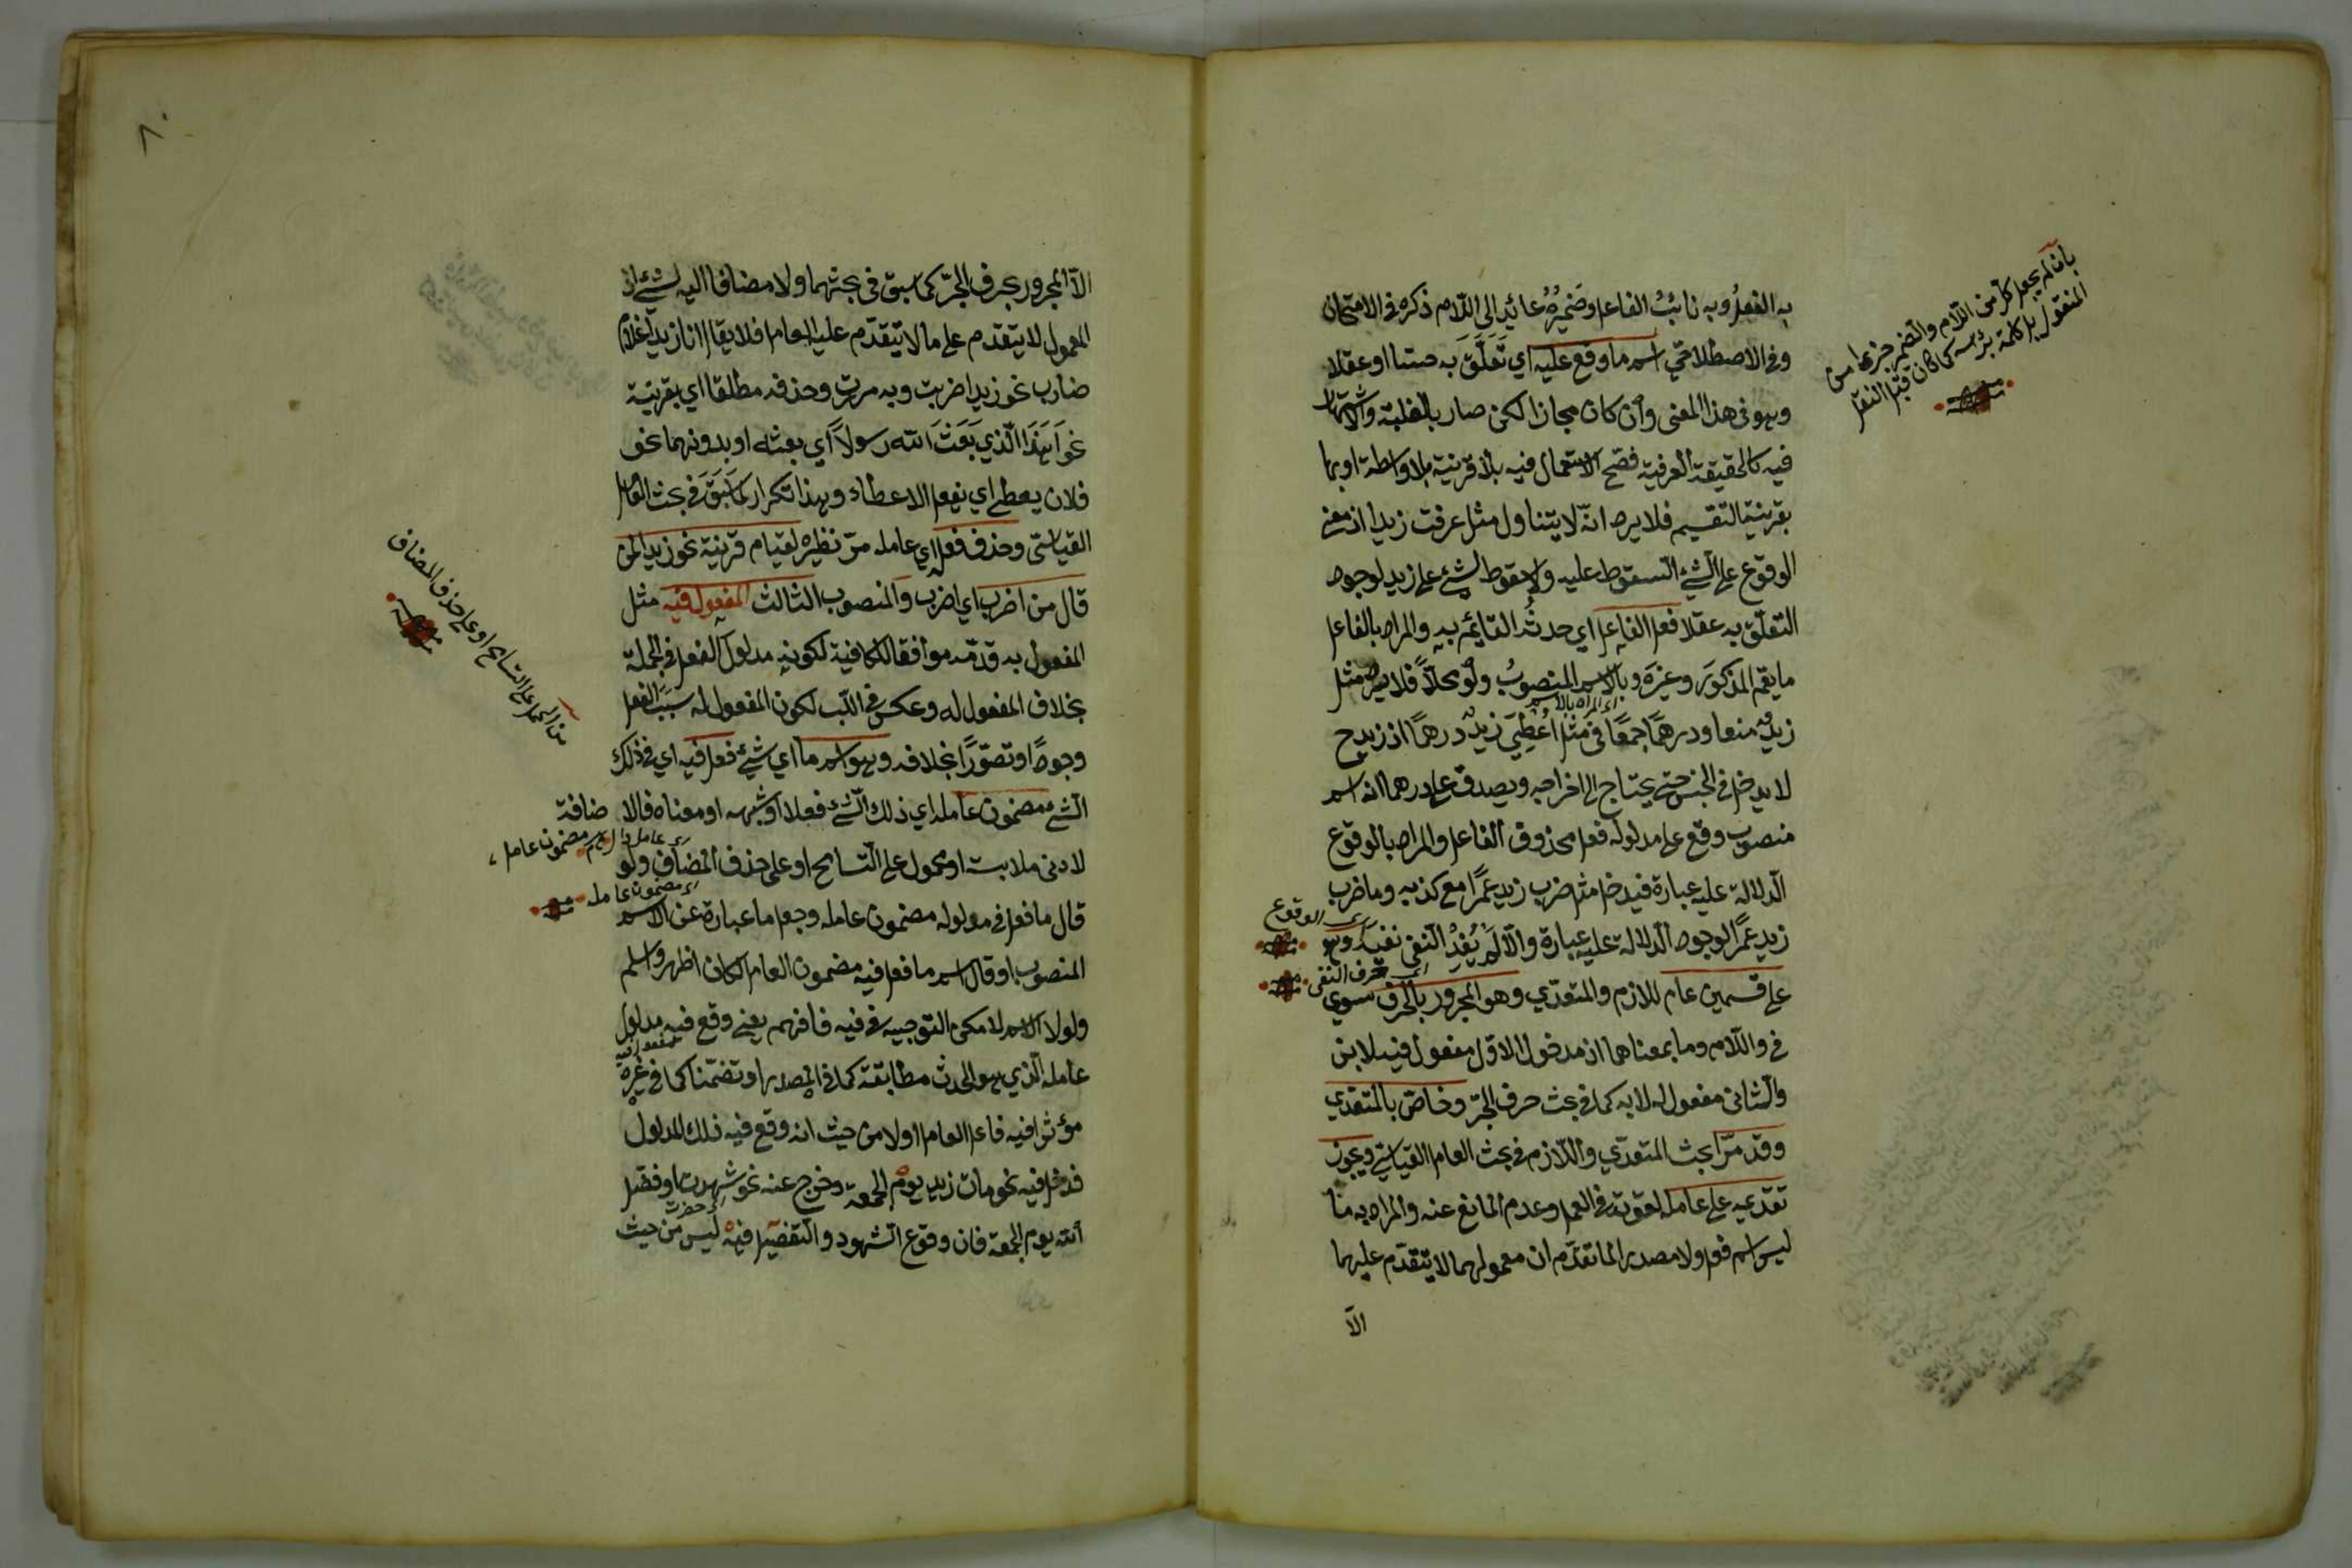 به الفعلُ وبه نائبُ الفاعل وضميرُهُ عائد الى اللام ذكره فى الامتحان
وفى الاصطلاحيّ اسم ما وقع عليه اي تَعَلَّقَ به حسّا او عقلا
وهو فى هذا المعنى وأن كان مجازا لكن صار بالغلبة والاشتهار
فيه كالحقيقة العرفية فصّح الاستعمال فيه بلا قرينة بلا واسطة او بها
بقرينة التقسيم فلا يرد انّه لا يتناول مثل عرفت زيدا اذ معنى
الوقوع على الشئ السقوط عليه ولا سقوط لشئ على زيد لوجود
التعلّق به عقلا فعل الفاعل اي حدثُه القائم به والمراد بالفاعل
ما يعمّ المذكورَ وغيرَه وبالاسم المنصوبُ ولو محلاًّ فلا يرد مثل
اى المراد بالاسم
زيد منعا ودرهمًا جمعًا فى مثل اُعْطِيَ زيدٌ درهمًا اذ زيد ح
لا يدخل فى الجنس حتى يحتاج الى اخراجه ويصدق على درهما انه اسم
منصوب وقع على مدلوله فعل محذوف الفاعل والمراد بالوقوع
الدلالة عليه عبارة فيدخل مثل ضرب زيد عمرًا مع كذبه وما ضرب
اى الوقوع
زيد عمرًا لوجود الدلالة عليه عبارة والّا لَمْ يُفِدْ النفى نفيَه وهو
اى حرف النفى
على قسمين عام للازم والمتعدّي وهو المجرور بالحرف سوى
فى واللام وما بمعناهما اذ مدخول الاوّل مفعول فيه لا به
والثانى مفعول له لا به كما فى بحث حرف الجرّ وخاصّ بالمتعّدي
وقد مرّ بحث المتعدّي واللّازم فى بحث العامل القياسيّ ويجوز
تقدّمه على عامله لقوّته فى العمل وعدم المانع عنه والمراد به ما
ليس اسم فعل ولا مصدر لما تقدّم ان معمولهما لا يتقدّم عليهما
الّا
بان لم يجعل كل من اللام والضمير جزءا من
المنقول بل كلمة برأسه كما كان قبل النقل
٨٠
الّا المجرور بحرف الجرّ كما سبق فى بحثهما ولا مضافا اليه لشئ اذ
المعمول لا يتقدم على ما لا يتقدّم عليه العامل فلا يقال انا زيدا غلامُ
ضارب نحو زيدا ضربت وبه مررت وحذفه مطلقا اي بقرينة
نحو اَهٰذَا الّذي بَعَثَ الله رسولاً اي بعثه او بدونها نحو
فلان يعطى اي يفعل الاعطاء وهذا تكرار لما سَبَقَ فى بحث العامل
القياسيّ وحذف فعله اي عامله مرّ نظيره لقيام قرينة نحو زيدا لمن
قال من اضرب اي اضرب والمنصوب الثالث المفعول فيه مثل
المفعول به قدّمه موافقا للكافية لكونه مدلولَ الفعل فى الجملة
بخلاف المفعول له وعكس فى اللّب لكون المفعول له سببَ الفعل
وجودًا وتصوّرًا بخلافه وهو اسم ما اي شئ فعل فيه اي فى ذلك
الشئ مضمون عامله اي ذلك الشئ فعلا او شبهه او معناه فالاضافة
لادنى ملابسة او محمول على التسامح او على حذف المضاف ولو
مضمون عامل
قال ما فعل فى مدلوله مضمون عامله وجعل ما عبارة عن الاسم
اى مضمون عامله
المنصوب او قال اسم ما فعل فيه مضمون العامل لكان اظهر واسلم
ولولا الاسم لامكن التوجيه فى فيه فافهم يعنى وقع فيه مدلول
مفعول فيه
عامله الّذي هو الحدث مطابقة كما فى المصدر او تضمّنا كما فى غيره
مؤثرا فيه فاعل العامل اولا من حيث انه وقع فيه ذلك المدلول
فدخل فيه نحو مات زيد يوم الجمعة وخرج عنه نحو شهدت او فضّل
اى حضرت
الله يوم الجمعة فان وقوع الشهود والتفضيل فيه ليس من حيث
من الحمل على التسامح او على حذف المضاف